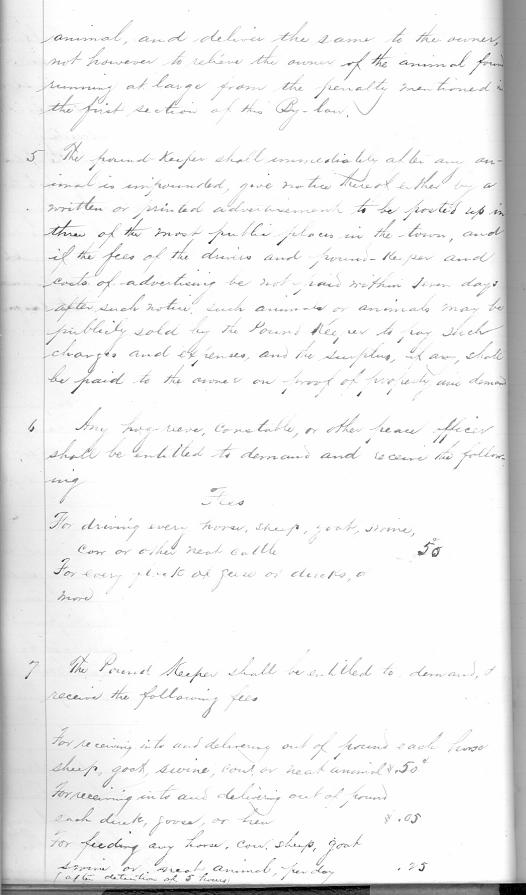 animal, and deliver the same to the owner,
not however to relieve the owner of the animal foun
running at large from the penalty mentioned in
the first section of this By-law.
5 The pound-Keeper shall immediately after any an-
imal is impounded, give notice thereof either by a
written or printed advertisement to be posted up in
three of the most public places in the town, and
if the fees of the drivers and pound-Keeper and
costs of advertising be not paid within seven days
after such notice, such animal or animals may be
publicly sold by the Pound Keeper to pay such
charges and expenses, and the surplus, if any, shall
be paid to the owner on proof of property and demand
6 Any hog-reeve, constable, or other peace officer
shall be entitled to demand and receive the follow-
ing
Fees
For driving every horse, sheep, goat, swine,
Cow or other neat cattle .50
For every flock of geese or ducks, or
more
7 The Pound Keeper shall be entitled to demand, &
receive the following fees
For receiving into and delivering out of pound each horse
sheep, goat, swine, cow or neat animal $.50
For receiving into and delivering out of pound
each duck, goose, or hen $.05
For feeding any horse, cow, sheep, goat
swine or neat animal, per day .25
(after detention of 5 hours)